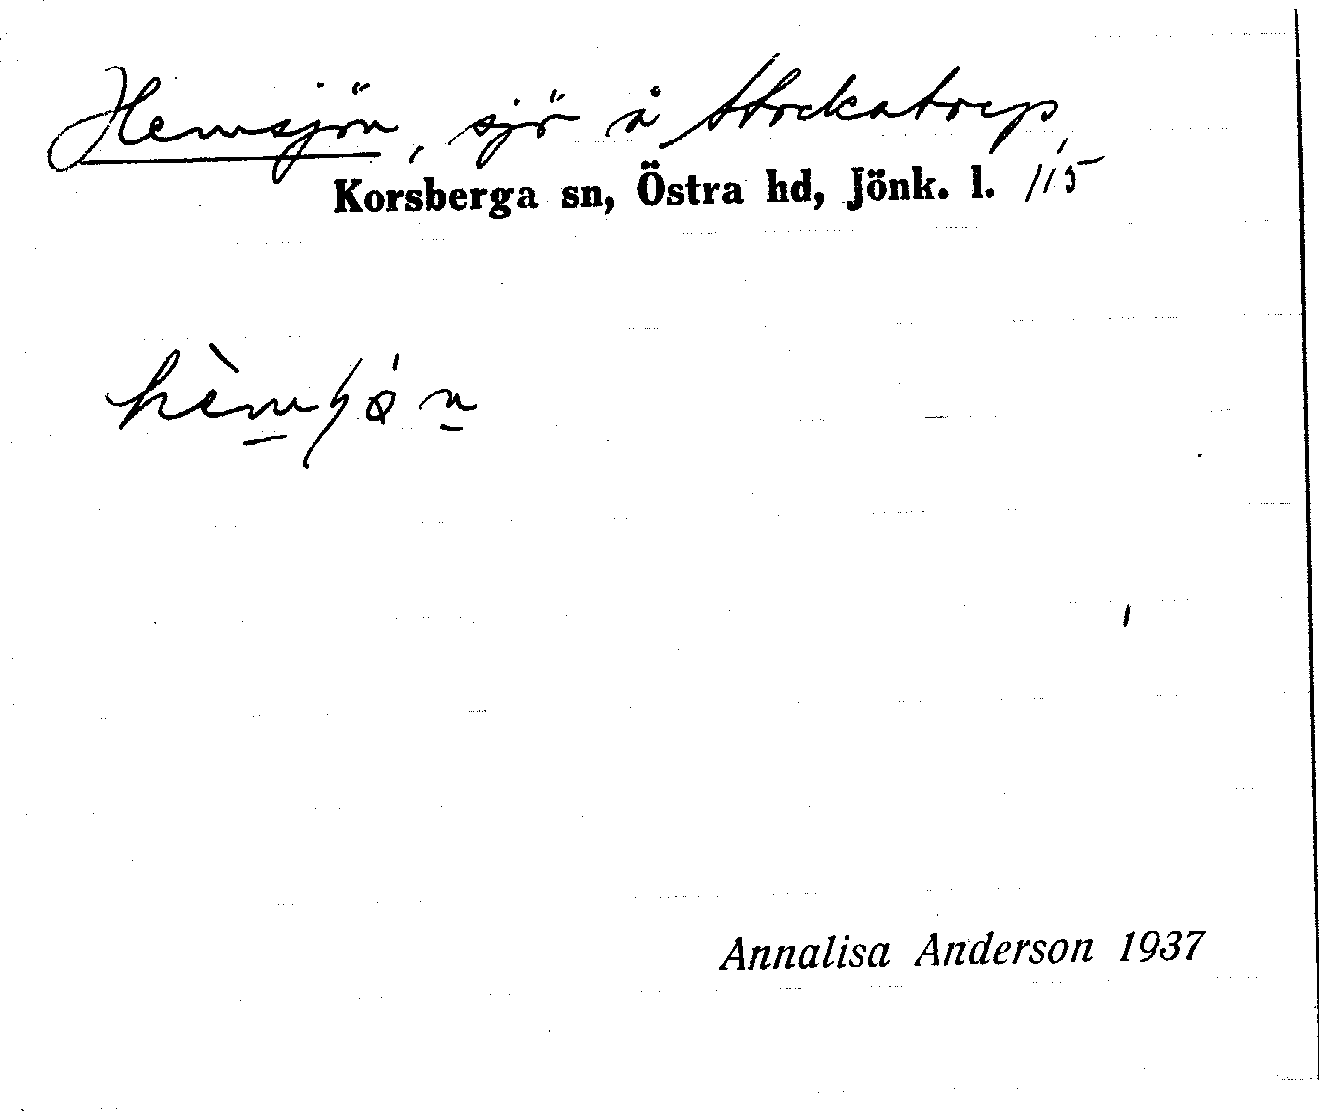 Hemsjön, sjö å Stockatorp,
Korsberga sn, Östra hd, Jönk. l. 115
Annalisa Anderson 1937